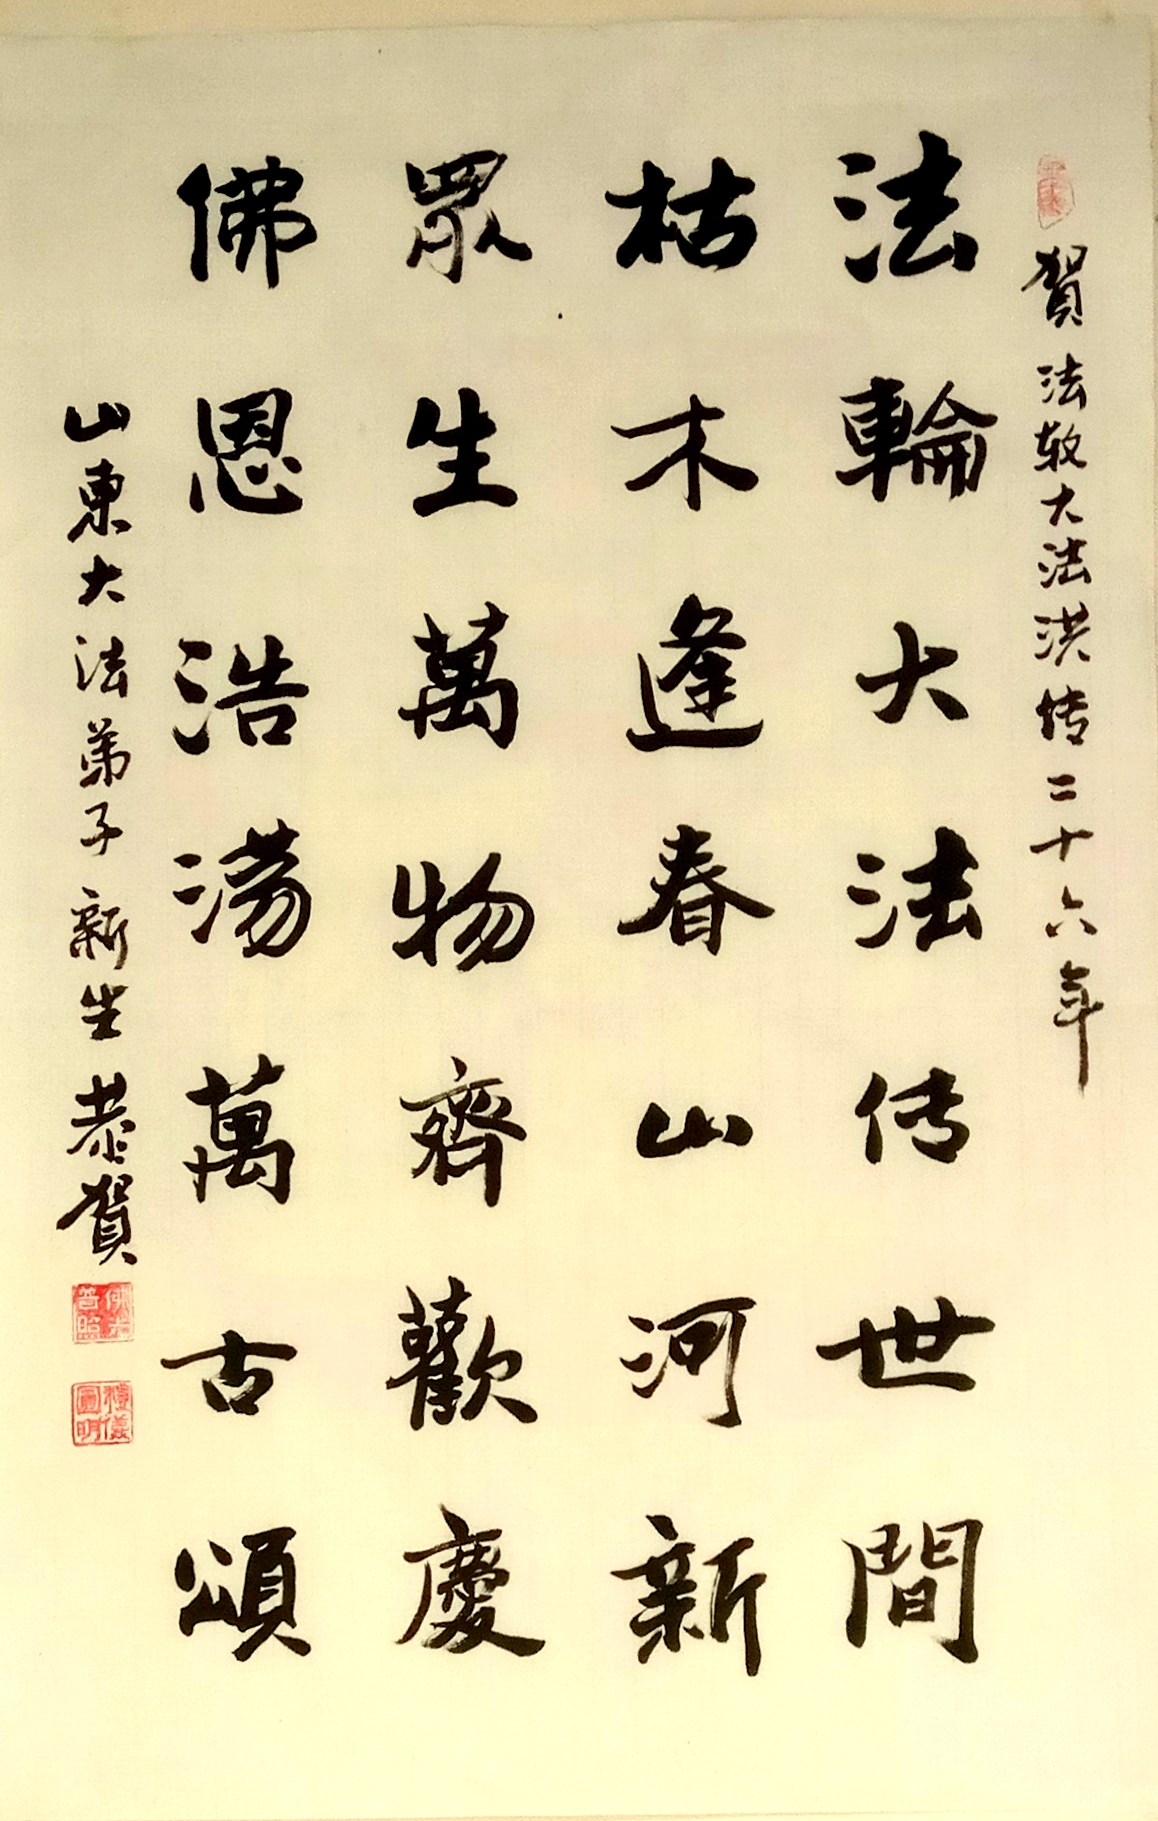 賀法輪大法洪传二十六年
法輪大法传世間
枯木逢春山河新
眾生萬物齊歡慶
佛恩浩蕩萬古頌
山東大法弟子新生恭賀
佛光普照
禮儀圓明